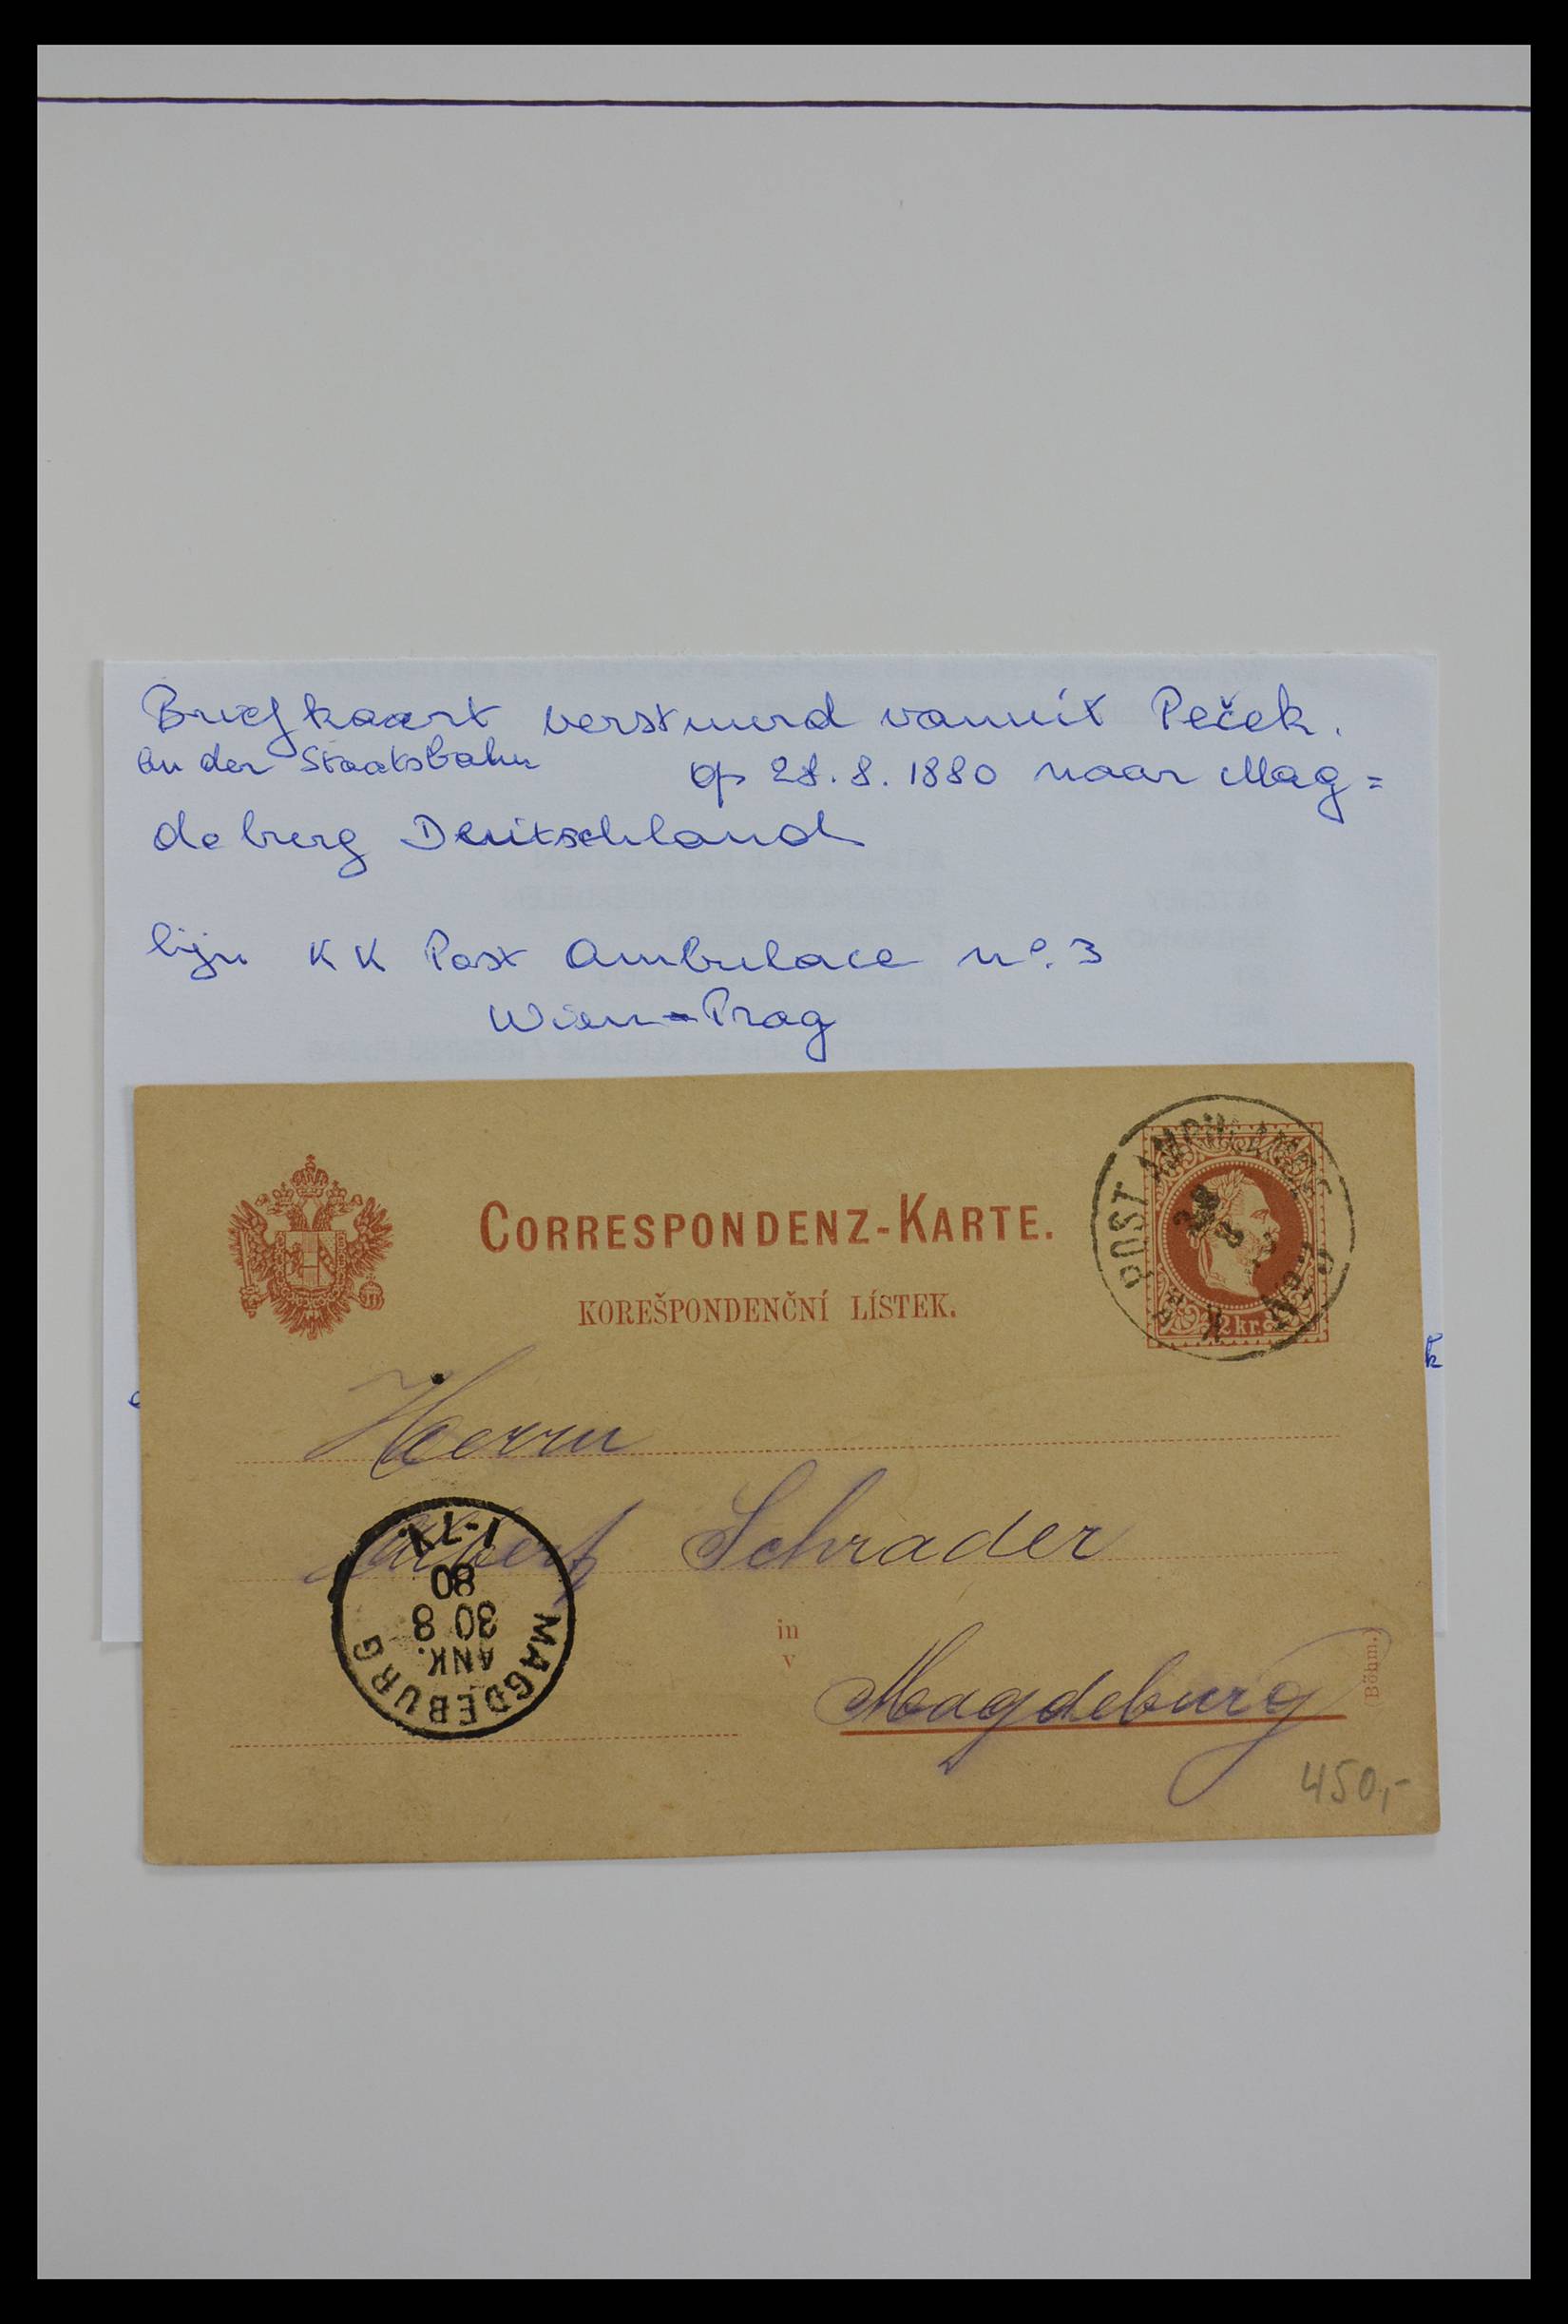 Briefkaart verstuurd vanuit Peček.
an der Staatsbahn op 28.8.1880 naar Mag=
deburg Deutschland
lijn KK Post Ambulace no. 3
Wien-Prag
CORRESPONDENZ-KARTE.
KOREŠPONDENČNÍ LÍSTEK.
K.K. POST AMBULANCE
28
8
2 kr.
Herrn
Albert Schrader
in
v
Magdeburg
(Böhm.)
MAGDEBURG
ANK.
30 8
80
1-7V.
450,-